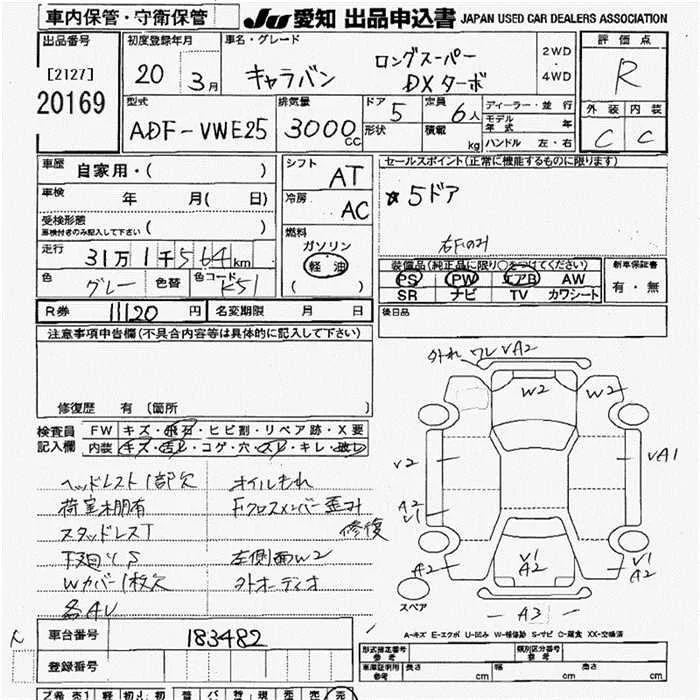 車内保管・守衛保管
JU 愛知 出品申込書 JAPAN USED CAR DEALERS ASSOCIATION
出品番号
[2127]
20169
初度登録年月
20 3月
車名・グレード
キャラバン
ロングスーパー
DXターボ
2WD
・
4WD
評価点
R
外装 内装
C C
型式
ADF-VWE25
排気量
3000cc
ドア
5
定員
6人
形状
積載
kg
ディーラー・並行
モデル年式 年
ハンドル 左・右
車歴
自家用・( )
車検
年 月( 日)
受検形態
車検付きのみ記入して下さい ( )
走行
31万1千564km
色
グレー
色替
色コード
K51
シフト
AT
冷房
AC
燃料
ガソリン
軽油
( )
セールスポイント(正常に機能するものに限ります)
☆5ドア
右Fのみ
装備品(純正品に限り○をつけてください)
PS PW エアB AW
SR ナビ TV カワシート
新車保証書
有・無
R券 11120円
名変期限 月 日
後日品
注意事項申告欄(不具合内容等は具体的に記入して下さい)
修復歴 有 (箇所 )
検査員記入欄
FW キズ・飛石・ヒビ割・リペア跡・X要
内装 キズ・汚レ・コゲ・穴・スレ・キレ・破レ
ヘッドレスト1部欠 オイルもれ
荷室木棚有 Fクロスメンバー歪み
修復
スタッドレスT
下廻りS 左側面W2
Wカバー1枚欠 外オーディオ
各AV
外れ ワレ VA2
W2 W2
V2
VA1
A2
V1
A2
V1
A2
V1
A2
スペア
A3
A-キズ E-エクボ U-凹み W-補修跡 S-サビ C-腐食 XX-交換済
車台番号
183482
登録番号
形式指定番号
参考
類別区分番号
参考
車庫証明用
参考
長さ cm
幅 cm
高さ cm